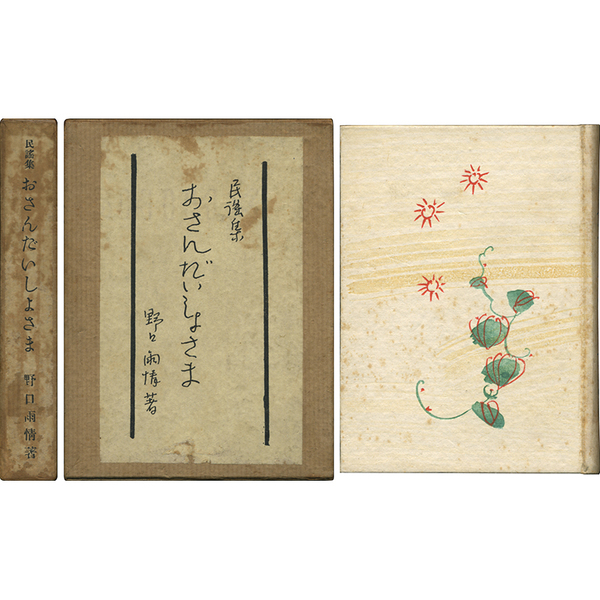 民謠集
おさんだいしよさま
野口雨情著
民謡集
おさんだいしよさま
野口雨情著